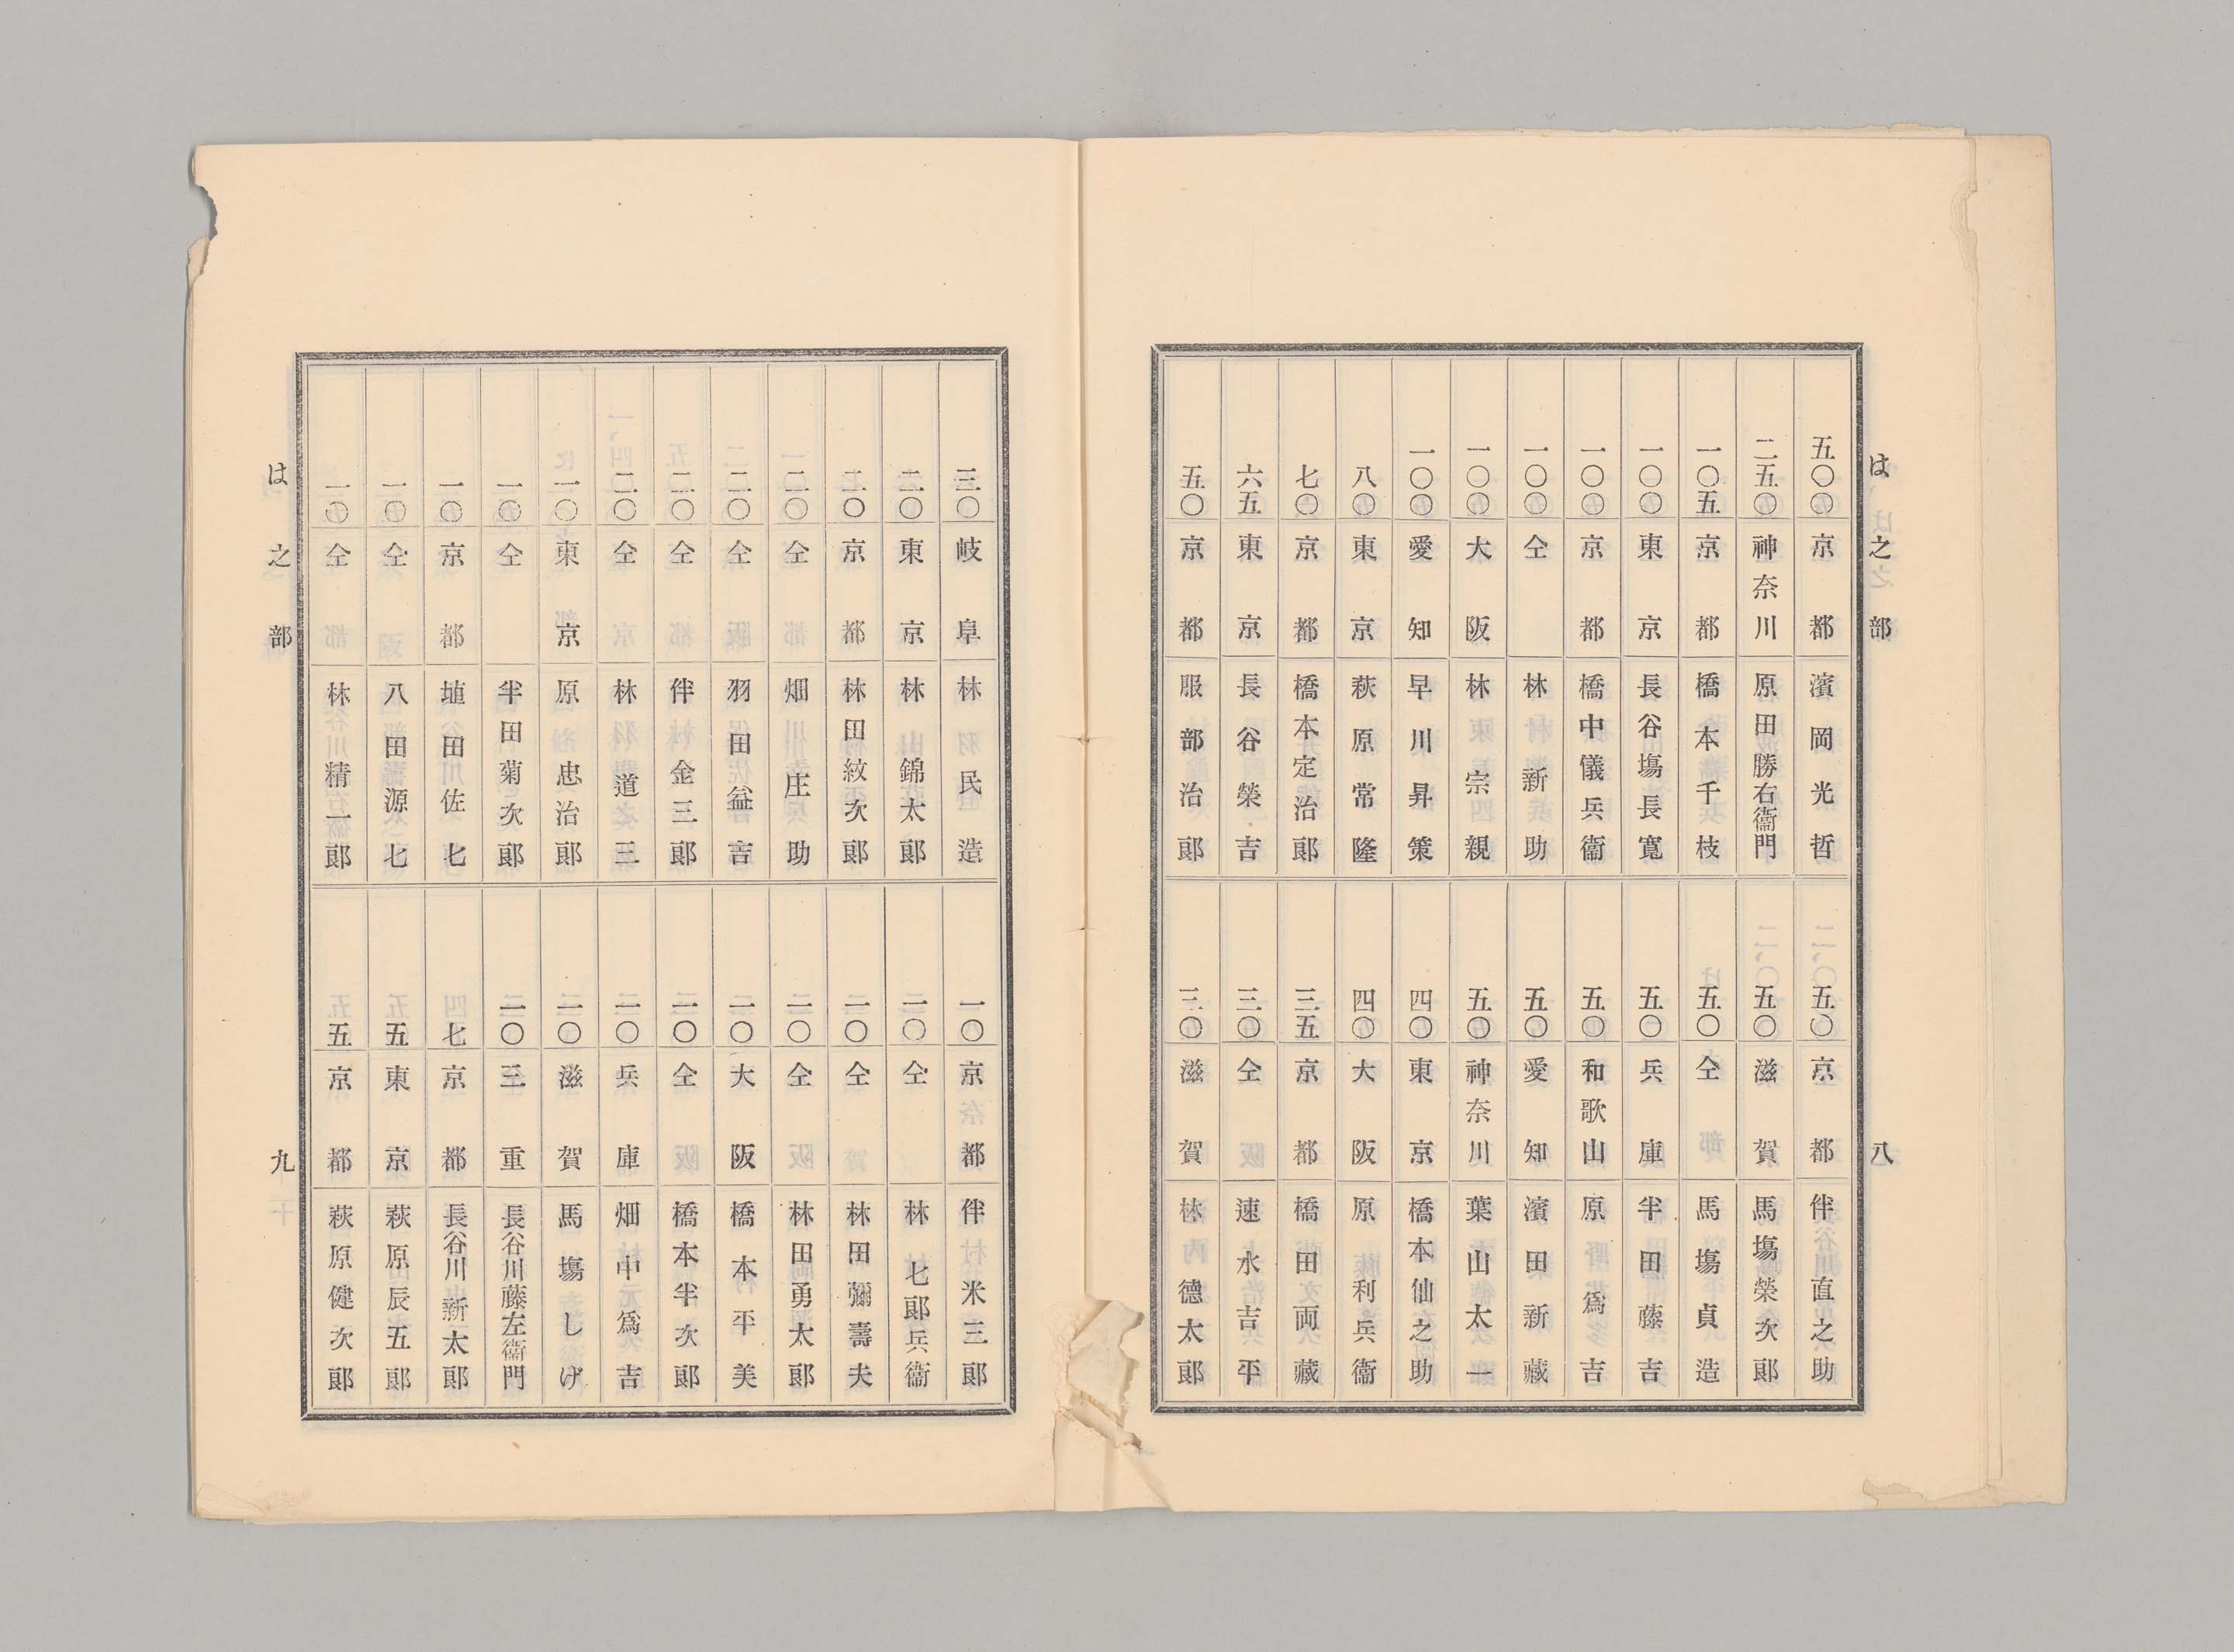 は之部 八
五〇〇 京都 濱岡光哲
二五〇 神奈川 原田勝右衞門
一〇五 京都 橋本千枝
一〇〇 東京 長谷塲長寛
一〇〇 京都 橋中儀兵衞
一〇〇 仝 林新助
一〇〇 大阪 林宗親
一〇〇 愛知 早川昇策
八〇 東京 萩原常隆
七〇 京都 橋本定治郎
六五 東京 長谷榮吉
五〇 京都 服部治郎
五〇 京都 伴直之助
五〇 滋賀 馬塲榮次郎
五〇 仝 馬塲貞造
五〇 兵庫 半田藤吉
五〇 和歌山 原爲吉
五〇 愛知 濱田新藏
五〇 神奈川 葉山太一
四〇 東京 橋本仙之助
四〇 大阪 原利兵衞
三五 京都 橋田両藏
三〇 仝 速水吉平
三〇 滋賀 林德太郎
三〇 岐阜 林民造
二〇 東京 林錦太郎
二〇 京都 林田紋次郎
二〇 仝 畑庄助
二〇 仝 羽田益吉
二〇 仝 伴金三郎
二〇 仝 林道三
一〇 東京 原忠治郎
一〇 仝 半田菊次郎
一〇 京都 埴田佐七
一〇 仝 八田源七
一〇 仝 林精一郎
一〇 京都 伴米三郎
一〇 仝 林七郎兵衞
一〇 仝 林田彌壽夫
一〇 仝 林田勇太郎
一〇 大阪 橋本平美
一〇 仝 橋本半次郎
一〇 兵庫 畑中爲吉
一〇 滋賀 馬塲しげ
一〇 三重 長谷川藤左衞門
七 京都 長谷川新太郎
五 東京 萩原辰五郎
五 京都 萩原健次郎
は之部 九